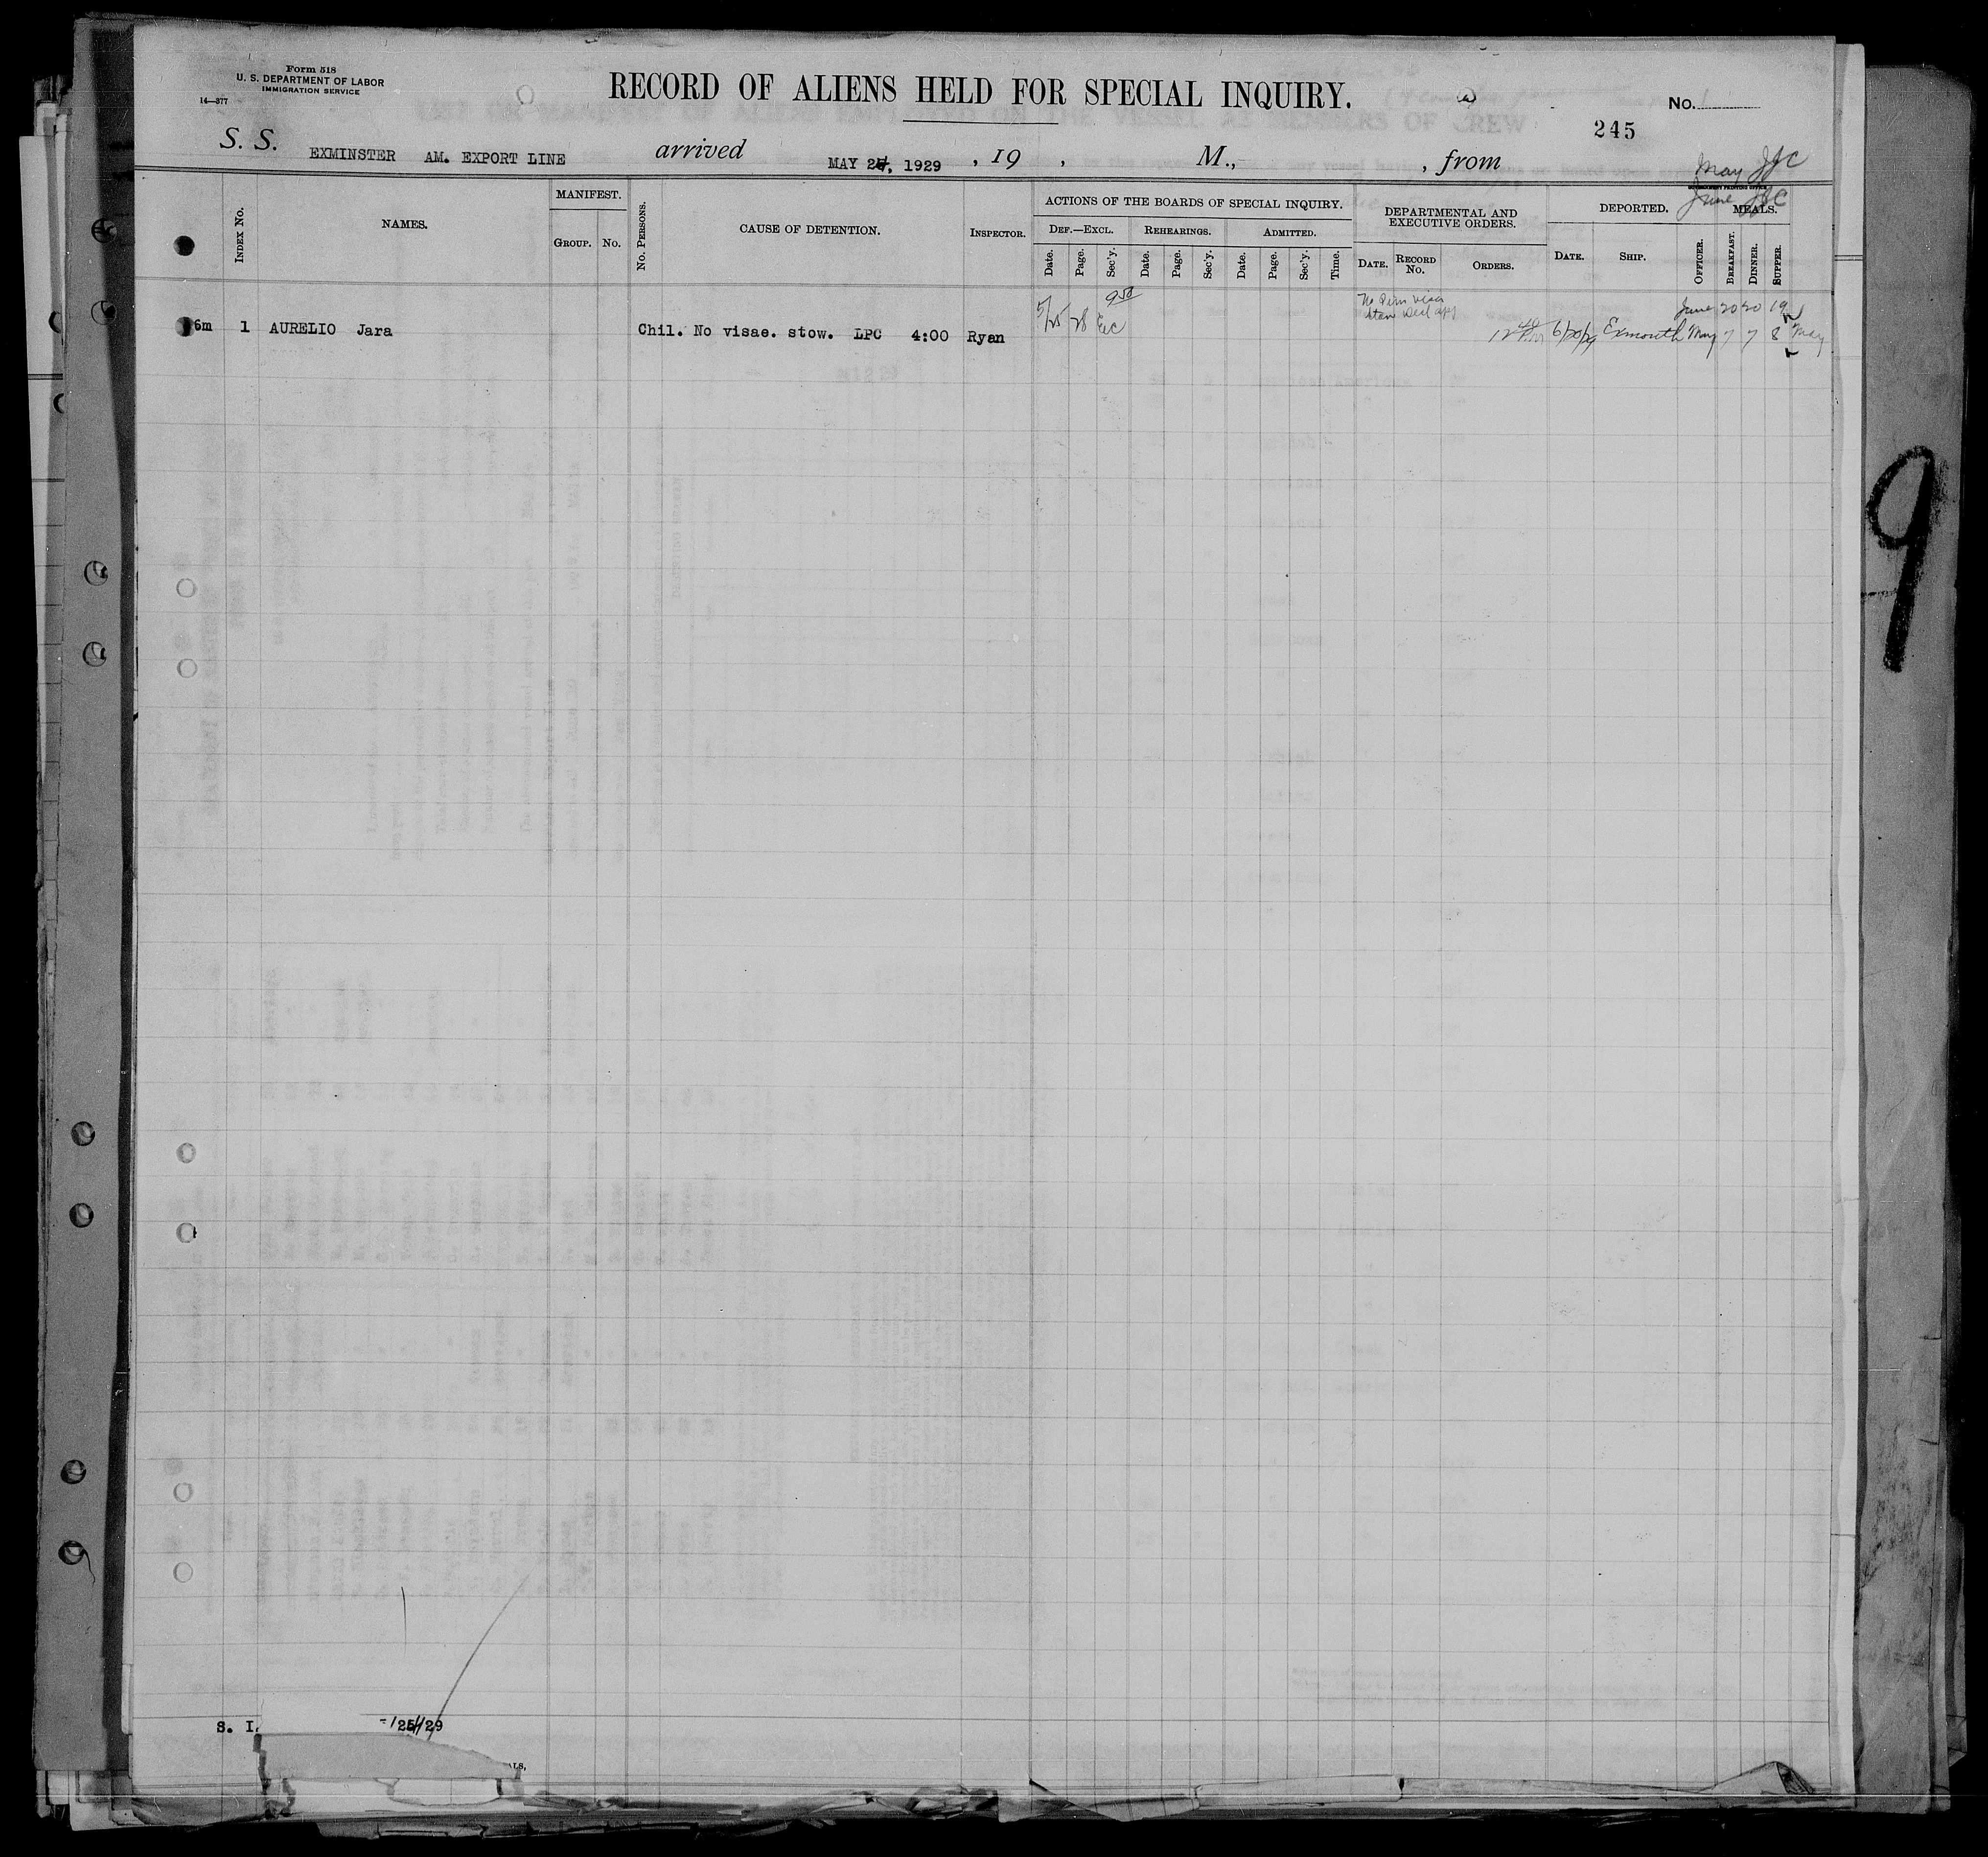 Form 518
U. S. DEPARTMENT OF LABOR
IMMIGRATION SERVICE
14—377
RECORD OF ALIENS HELD FOR SPECIAL INQUIRY.
No. 1
245
S. S. EXMINSTER AM. EXPORT LINE arrived MAY 24, 1929 , 19 , M., , from
May JJC
GOVERNMENT PRINTING OFFICE
June JJC
INDEX No.
NAMES.
MANIFEST.
GROUP. No.
No. PERSONS.
CAUSE OF DETENTION.
INSPECTOR.
ACTIONS OF THE BOARDS OF SPECIAL INQUIRY.
DEF.—EXCL. REHEARINGS. ADMITTED.
Date. Page. Sec'y. Date. Page. Sec'y. Date. Page. Sec'y. Time.
DEPARTMENTAL AND
EXECUTIVE ORDERS.
DATE. RECORD No. ORDERS.
DEPORTED.
DATE. SHIP.
OFFICER.
MEALS.
BREAKFAST. DINNER. SUPPER.
950 No visa June 20 20 19
6m 1 AURELIO Jara Chil. No visae. stow. LPC 4:00 Ryan 5/25 28 EC 6/20/29 Exmouth May 7 7 8 May
S. I. 25/29
ALS,
9